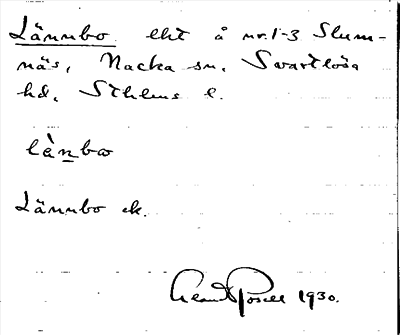 Lännbo lht å nr. 1-3 Slum-
näs, Nacka sn. Svartlösa
hd. Sthlms l.
lànbω
Lännbo ek.
1930.